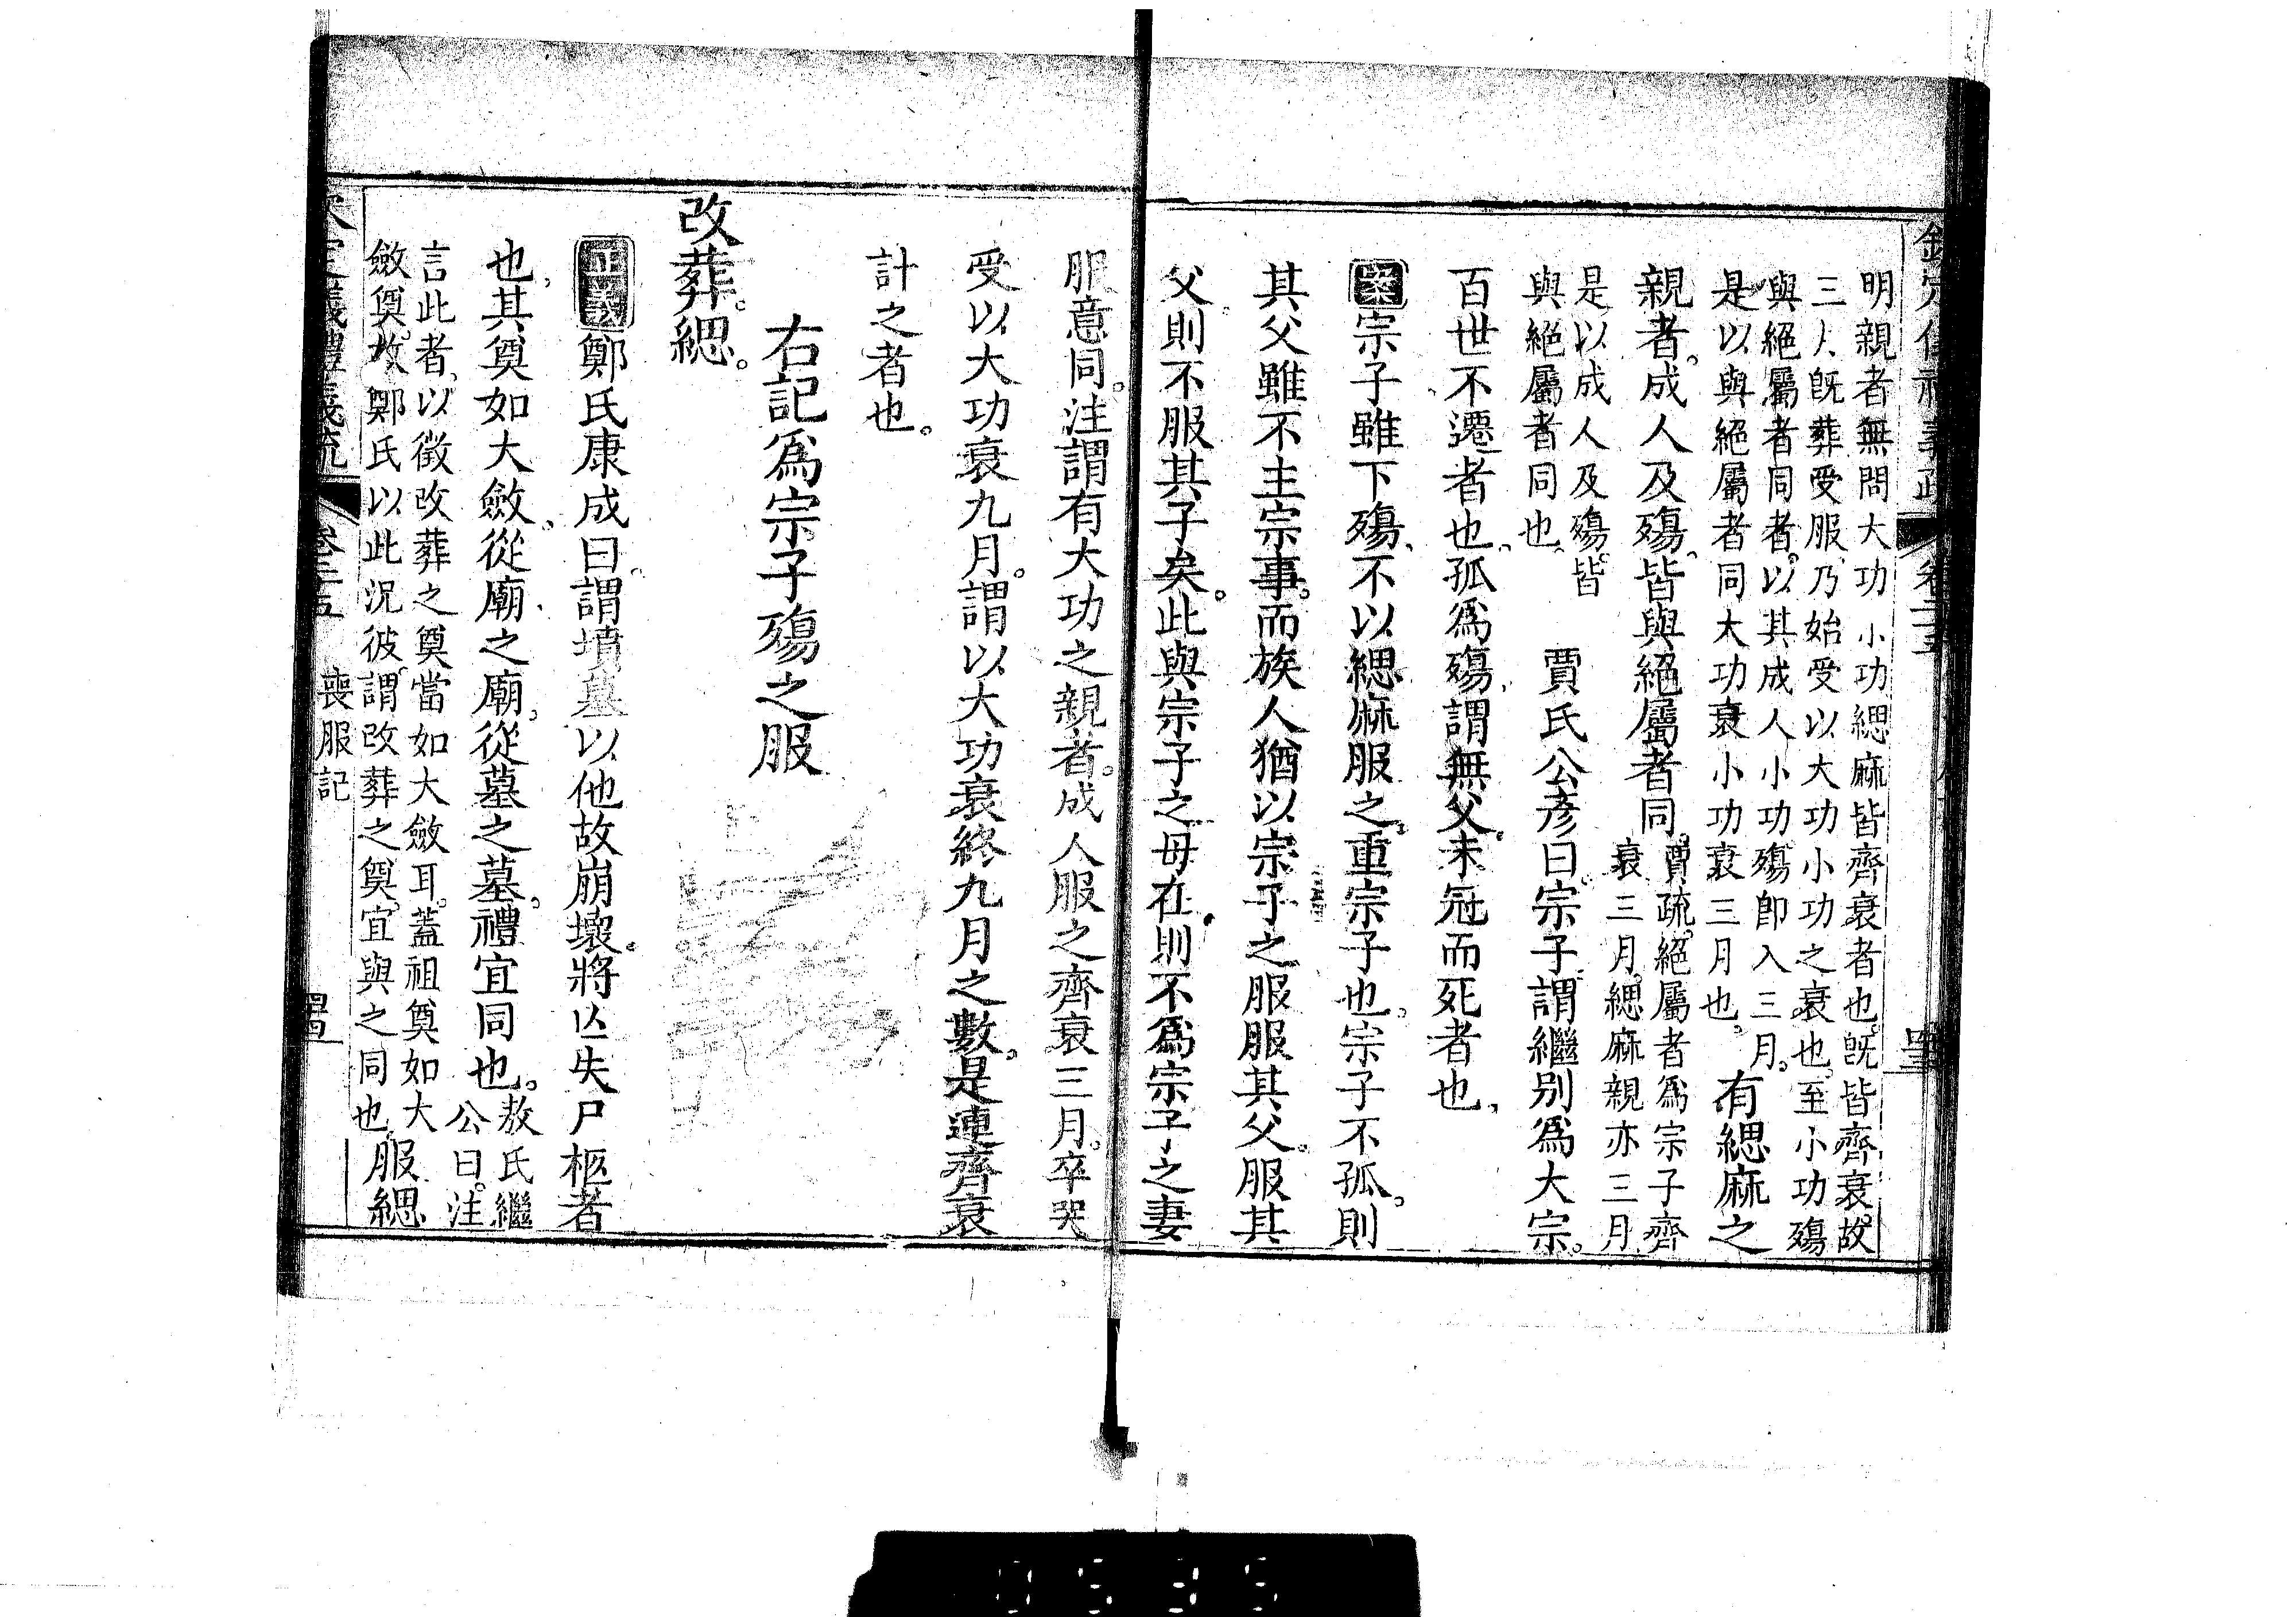 明親者無問大功小功緦麻皆齊衰者也旣皆齊衰故
三人旣葬受服乃始受以大功小功之衰也至小功殤
與絕屬者同者以其成人小功殤卽入三月
是以與絕屬者同大功衰小功衰三月也
有緦麻之
親者成人及殤皆與絕屬者同
賈疏絕屬者爲宗子齊
衰三月緦麻親亦三月
是以成人及殤皆
與絕屬者同也
賈氏公彥曰宗子謂繼別爲大宗
百世不遷者也孤爲殤謂無父未冠而死者也
案宗子雖下殤不以緦麻服之重宗子也宗子不孤則
其父雖不主宗事而族人猶以宗子之服服其父服其
父則不服其子矣此與宗子之母在則不爲宗子之妻
服意同注謂有大功之親者成人服之齊衰三月卒哭
受以大功衰九月謂以大功衰終九月之數是連齊衰
計之者也
右記爲宗子殤之服
改葬緦
正義鄭氏康成曰謂墳墓以他故崩壞將亾失尸柩者
也其奠如大斂從廟之廟從墓之墓禮宜同也
敖氏繼
公曰注
言此者以徵改葬之奠當如大斂耳蓋祖奠如大
斂奠故鄭氏以此況彼謂改葬之奠宜與之同也
服緦
欽定儀禮義疏 卷二十五 喪服記